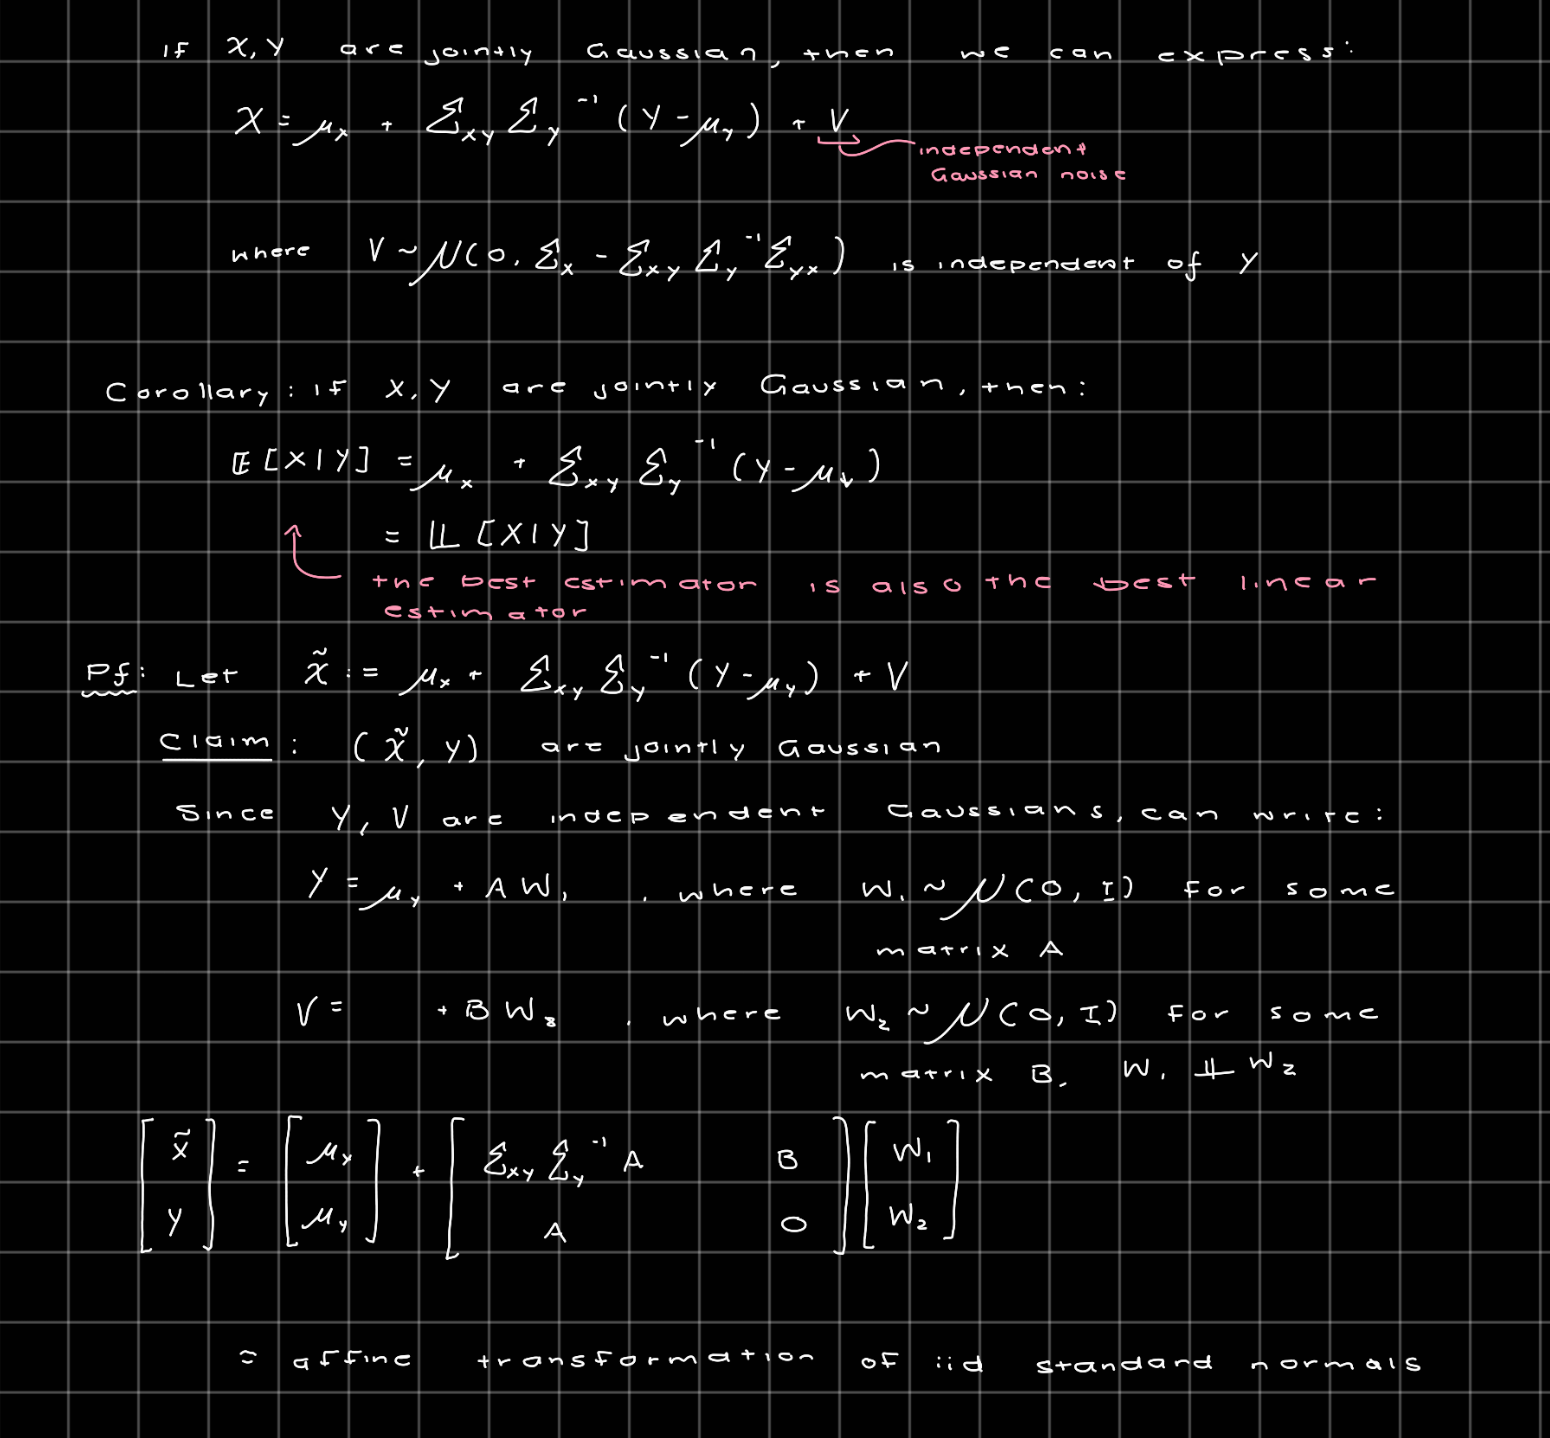 if X, Y are jointly Gaussian, then we can express:
X = μₓ + Σ_xy Σ_y⁻¹ (Y - μ_y) + V
independent
Gaussian noise
where V ~ N(0, Σ_x - Σ_xy Σ_y⁻¹ Σ_yx) is independent of Y
Corollary: if X, Y are jointly Gaussian, then:
𝔼[X|Y] = μ_x + Σ_xy Σ_y⁻¹ (Y - μ_y)
= 𝕃[X|Y]
the best estimator is also the best linear
estimator
Pf: Let X̃ := μ_x + Σ_xy Σ_y⁻¹ (Y - μ_y) + V
Claim: (X̃, Y) are jointly Gaussian
Since Y, V are independent Gaussians, can write:
Y = μ_y + A W₁, where W₁ ~ N(0, I) for some
matrix A
V = + B W₂, where W₂ ~ N(0, I) for some
matrix B, W₁ ⫫ W₂
[X̃ ; Y] = [μ_x ; μ_y] + [Σ_xy Σ_y⁻¹ A  B ; A  0] [W₁ ; W₂]
= affine transformation of iid standard normals